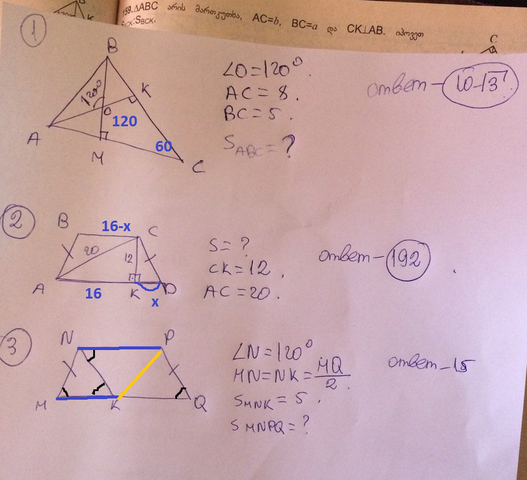 89. △ABC არის მართკუთხა, AC=b, BC=a და CK⊥AB. იპოვეთ
C
1
B
120°
K
O
120
A
M
60
C
∠O=120°.
AC=8.
BC=5.
S ABC=?
ответ-10√3
2
B
16-x
C
20
12
A
16
K
x
D
S=?
CK=12.
AC=20.
ответ-192
3
N
P
M
K
Q
∠N=120°
MN=NK=MQ/2.
S MNK=5.
S MNPQ=?
ответ-15